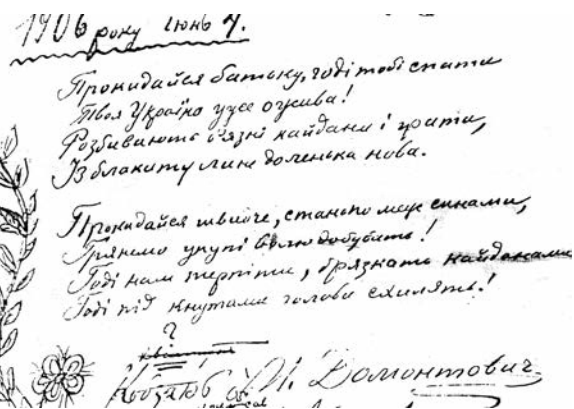 1906 року Июнь 7.
Прокидайся батьку, годі тобі спати
Твоя Україно уже ожива!
Розбивають вязні кайдани і грати,
Із блакиту лине доленька нова.
Прокидайся швидче, станьпо меж синами,
Грянемо укупі волю добувать!
Годі нам терпіти, брязкать кайданами
Годі під кнутами голови схилять!
?
М. Домонтович